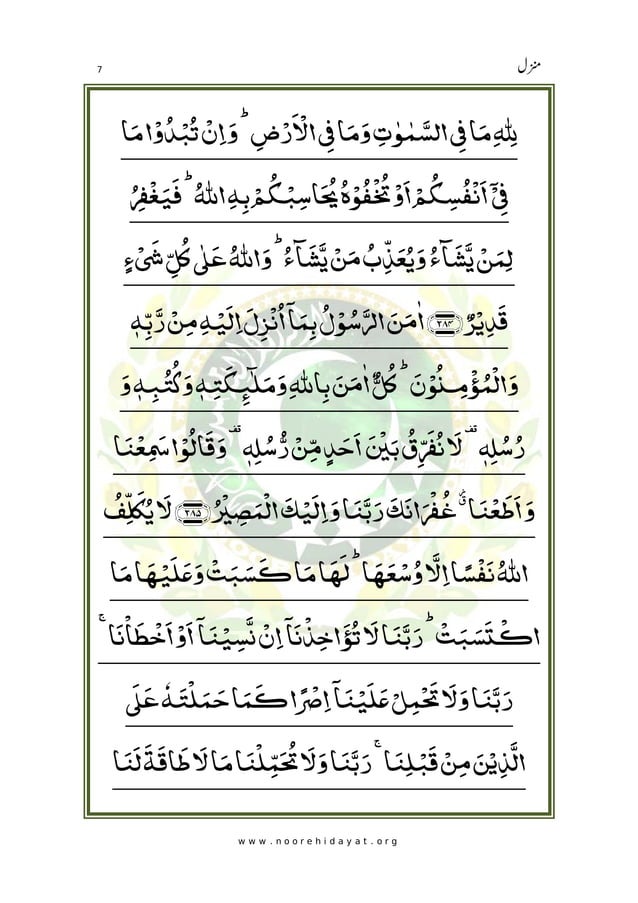 منزل 7
لِلّٰهِ مَا فِی السَّمٰوٰتِ وَمَا فِی الْاَرْضِ ؕ وَاِنْ تُبْدُوْا مَا
فِیْۤ اَنْفُسِكُمْ اَوْ تُخْفُوْهُ یُحَاسِبْكُمْ بِهِ اللهُ ؕ فَیَغْفِرُ
لِمَنْ یَّشَآءُ وَیُعَذِّبُ مَنْ یَّشَآءُ ؕ وَاللهُ عَلٰی كُلِّ شَیْءٍ
قَدِیْرٌ ﴿۲۸۴﴾ اٰمَنَ الرَّسُوْلُ بِمَاۤ اُنْزِلَ اِلَیْهِ مِنْ رَّبِّهٖ
وَالْمُؤْمِنُوْنَ ؕ كُلٌّ اٰمَنَ بِاللهِ وَمَلٰٓئِكَتِهٖ وَكُتُبِهٖ وَ
رُسُلِهٖ ۟ لَا نُفَرِّقُ بَیْنَ اَحَدٍ مِّنْ رُّسُلِهٖ ۟ وَقَالُوْا سَمِعْنَا
وَ اَطَعْنَا ٭۫ غُفْرَانَكَ رَبَّنَا وَاِلَیْكَ الْمَصِیْرُ ﴿۲۸۵﴾ لَا یُكَلِّفُ
اللهُ نَفْسًا اِلَّا وُسْعَهَا ؕ لَهَا مَا كَسَبَتْ وَعَلَیْهَا مَا
اكْتَسَبَتْ ؕ رَبَّنَا لَا تُؤَاخِذْنَاۤ اِنْ نَّسِیْنَاۤ اَوْ اَخْطَاْنَا ۚ
رَبَّنَا وَلَا تَحْمِلْ عَلَیْنَاۤ اِصْرًا كَمَا حَمَلْتَهٗ عَلَی
الَّذِیْنَ مِنْ قَبْلِنَا ۚ رَبَّنَا وَلَا تُحَمِّلْنَا مَا لَا طَاقَةَ لَنَا
www.noorehidayat.org